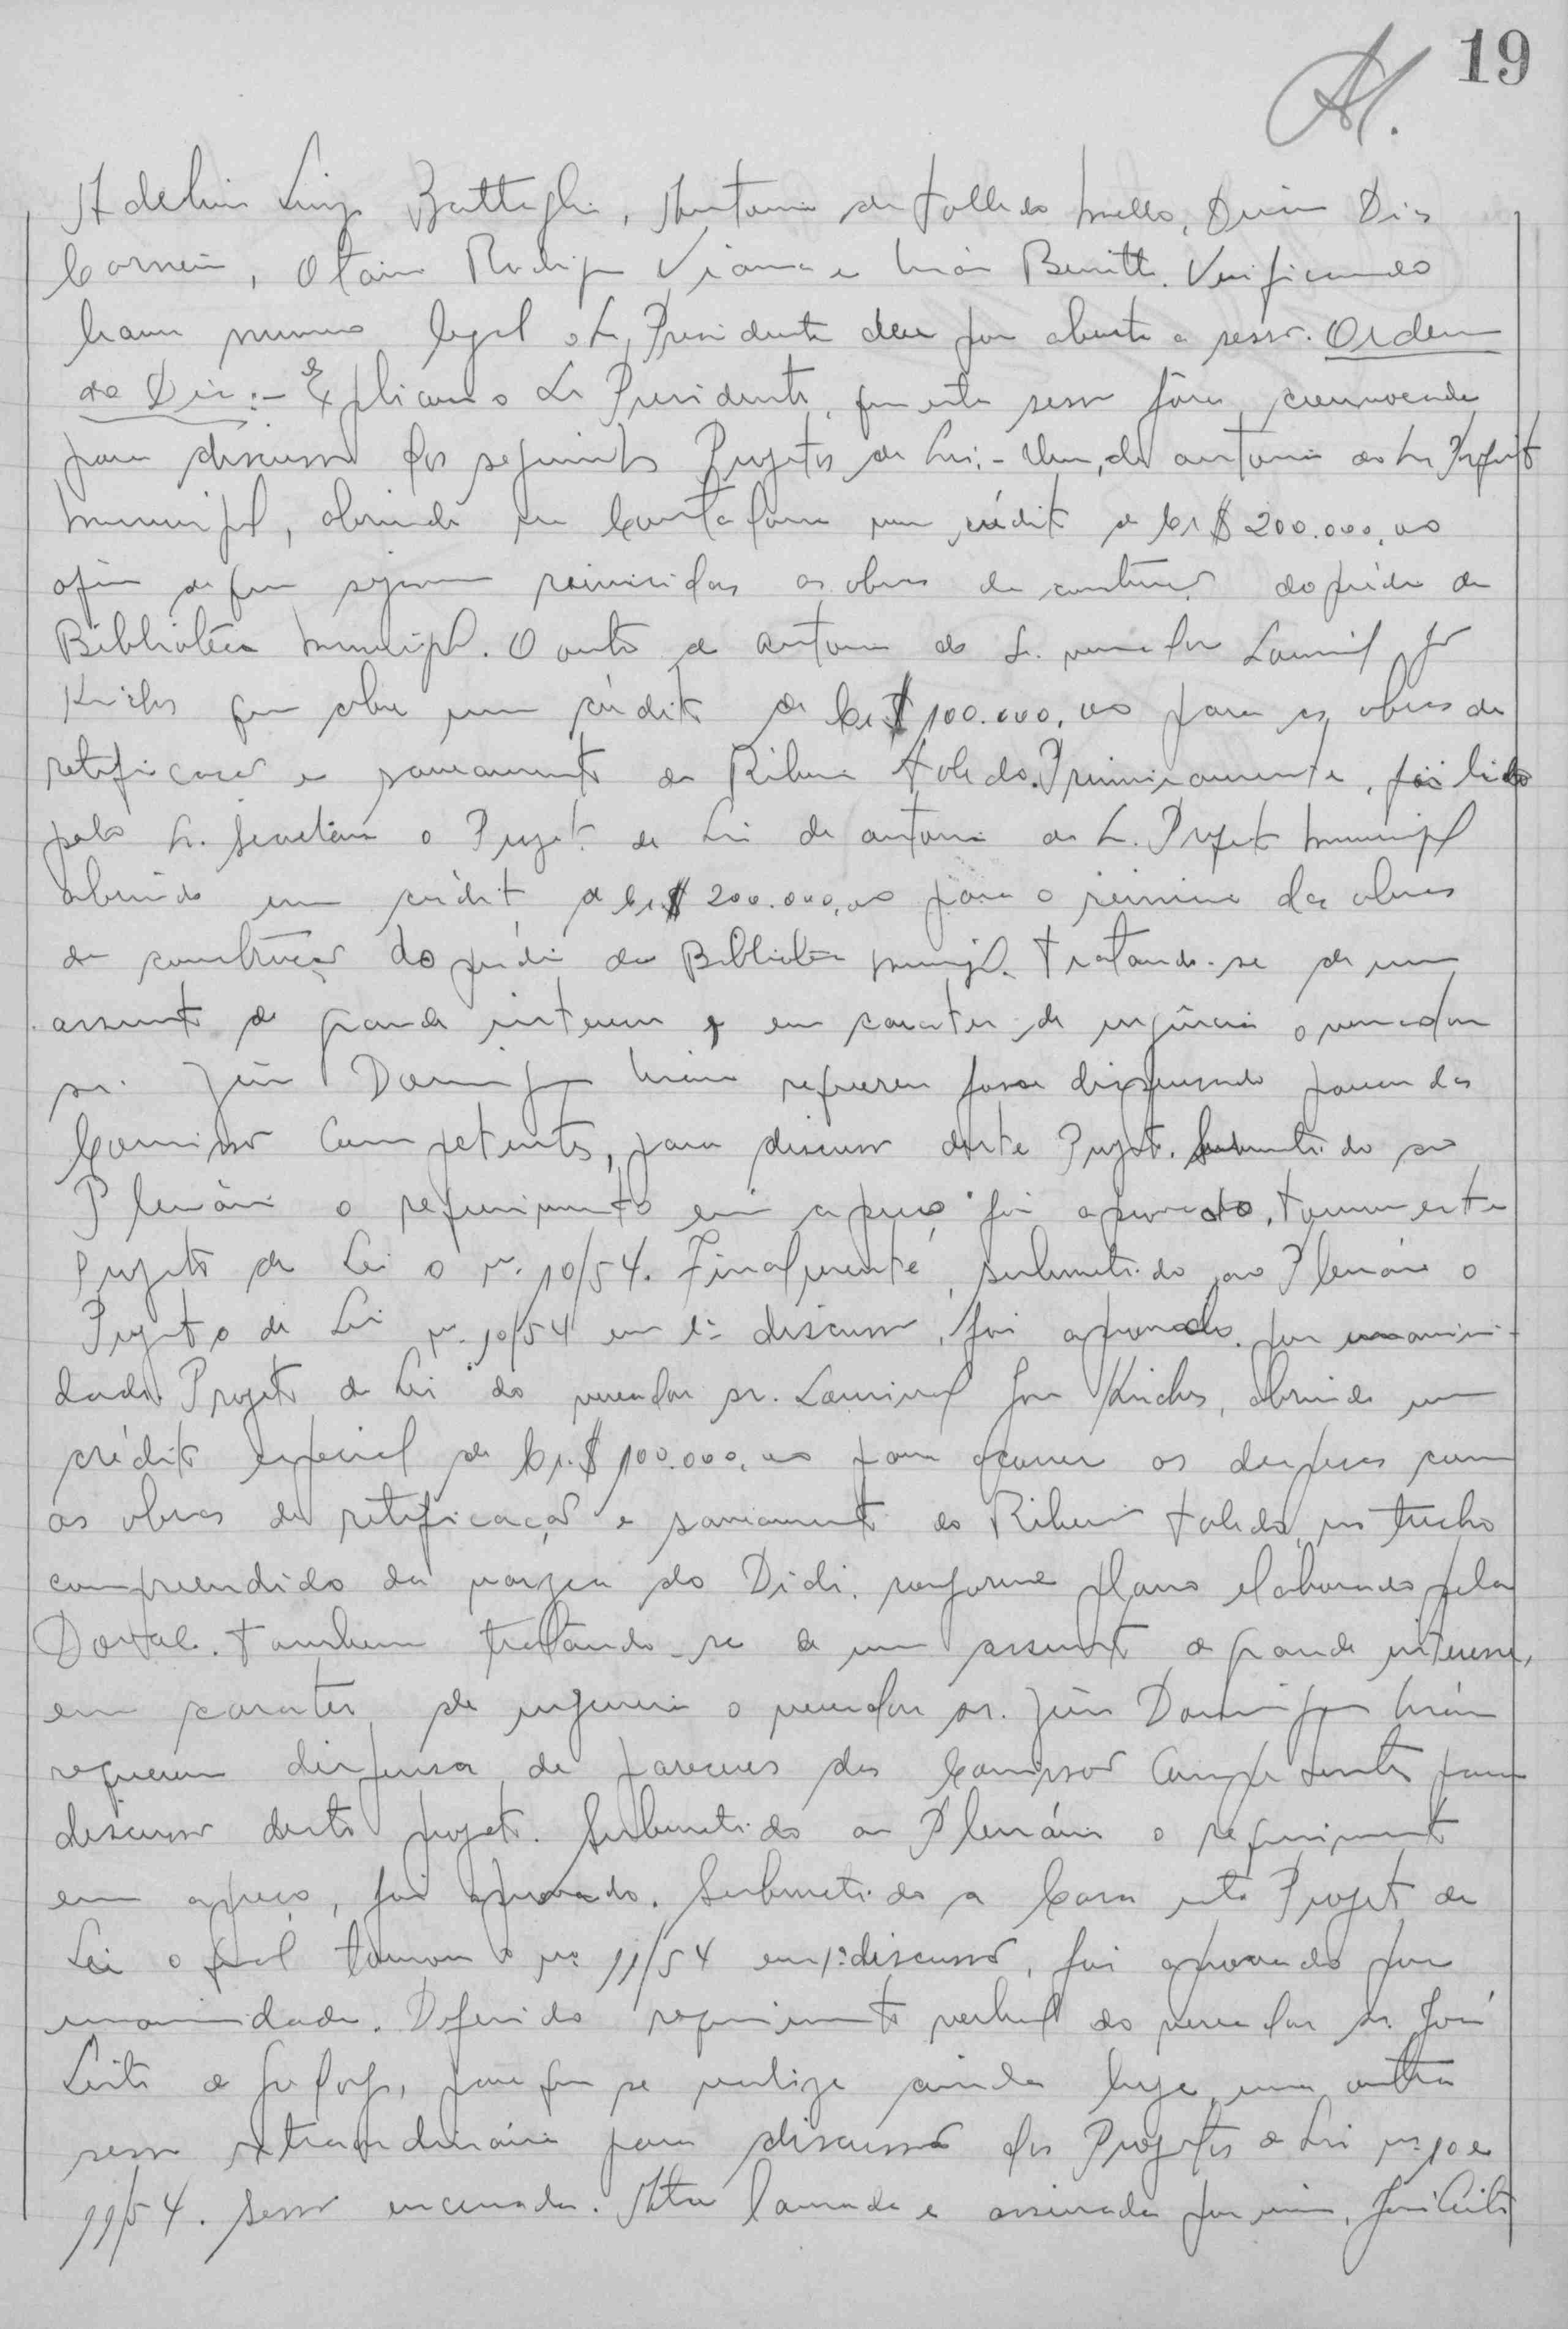 19
Adelino Luiz Battaglia, Antonio de Tolledo Mello, Dias
Carneiro, Otavio Rodrigues Viana e Benitti. Verificando
haver numero legal o Sr. Presidente deu por aberta a sessão. Ordem
do Dia:- Explicou o Sr. Presidente, que esta sessão fôra convocada
para discussão dos seguintes Projetos de Lei:- Um, de autoria do Sr. Prefeito
Municipal, abrindo na Contadoria um crédito de Cr$ 200.000,00
afim de que sejam reiniciadas as obras de construção do prédio da
Biblioteca Municipal. O outro de autoria do Sr. vereador Lourival José
que abre um crédito de Cr$ 100.000,00 para as obras de
retificação e saneamento do Ribeirão Toledo. Primeiramente, foi lido
pelo Sr. Secretário o Projeto de Lei de autoria do Sr. Prefeito Municipal
abrindo um crédito de Cr$ 200.000,00 para o reinicio das obras
de construção do prédio da Biblioteca Municipal. Tratando-se de um
assunto de grande interesse e em carater de urgência o vereador
sr. Domingos requereu fosse dispensado parecer das
Comissões Competentes, para discussão deste Projeto. Submetido ao
Plenário o requerimento em apreço foi aprovado. Tomou este
Projeto de Lei o nº 10/54. Finalmente, submetido ao Plenário o
Projeto de Lei nº 10/54 em 1ª discussão, foi aprovado por unanimi-
dade. Projeto de Lei do vereador sr. Lourival José, abrindo um
crédito especial de Cr.$ 100.000,00 para ocorrer as despesas com
as obras de retificação e saneamento do Ribeirão Toledo, no trecho
compreendido da varzea do Didi, conforme plano elaborado pela
Também tratando-se de um assunto de grande interesse,
em carater de urgencia o vereador sr. Domingos
requereu dispensa de pareceres das Comissões Competentes para
discussão deste projeto. Submetido ao Plenário o requerimento
em apreço, foi aprovado. Submetido a Casa este Projeto de
Lei o qual tomou o nº 11/54 em 1ª discussão, foi aprovado por
unanimidade. Deferido requerimento verbal do vereador sr. José
Leite de para que se realize ainda hoje, uma outra
sessão extraordinária para discussão dos Projetos de Lei nº 10 e
11/54. Sessão encerrada. Ata lavrada e assinada por mim, José Leite